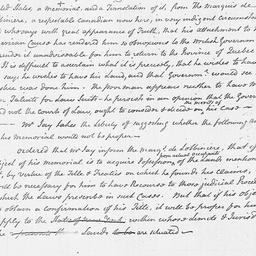 a memorial, and a Translation of it, from the marquis de
a respectable Canadian now here, in very indigent circumstances
who says with great appearance of Truth, that his attachment to
american Cause has rendered him so obnoxious to the British Government
render it unadviseable for him to return to the Province of Quebec
It is difficult to ascertain what it is precisely, that he wishes to have
says he wishes to have his Land, and that Government would see
was done him. The poor man appears restless to have to
Patents for Law Suits - he persists in an opinion that the
and not the Courts of Law, ought to consider & decide on the merits of his case -
Mr Jay takes the liberty of suggesting whether the following
his memorial would not be proper.
ordered that Mr Jay inform the marqs de Lotbiniere, that if
object of his memorial is to acquire Possession, from actual occupants of the Lands mentioned
by Virtue of the Title & Treaties on which he founds his claims,
will be necessary for him to have Recourse to those judicial
which the Laws prescribe in such Cases. But that if his
to obtain a Confirmation of his Title, it will be proper for him
apply to the State within whose domain & Jurisd
the Lands are situated -